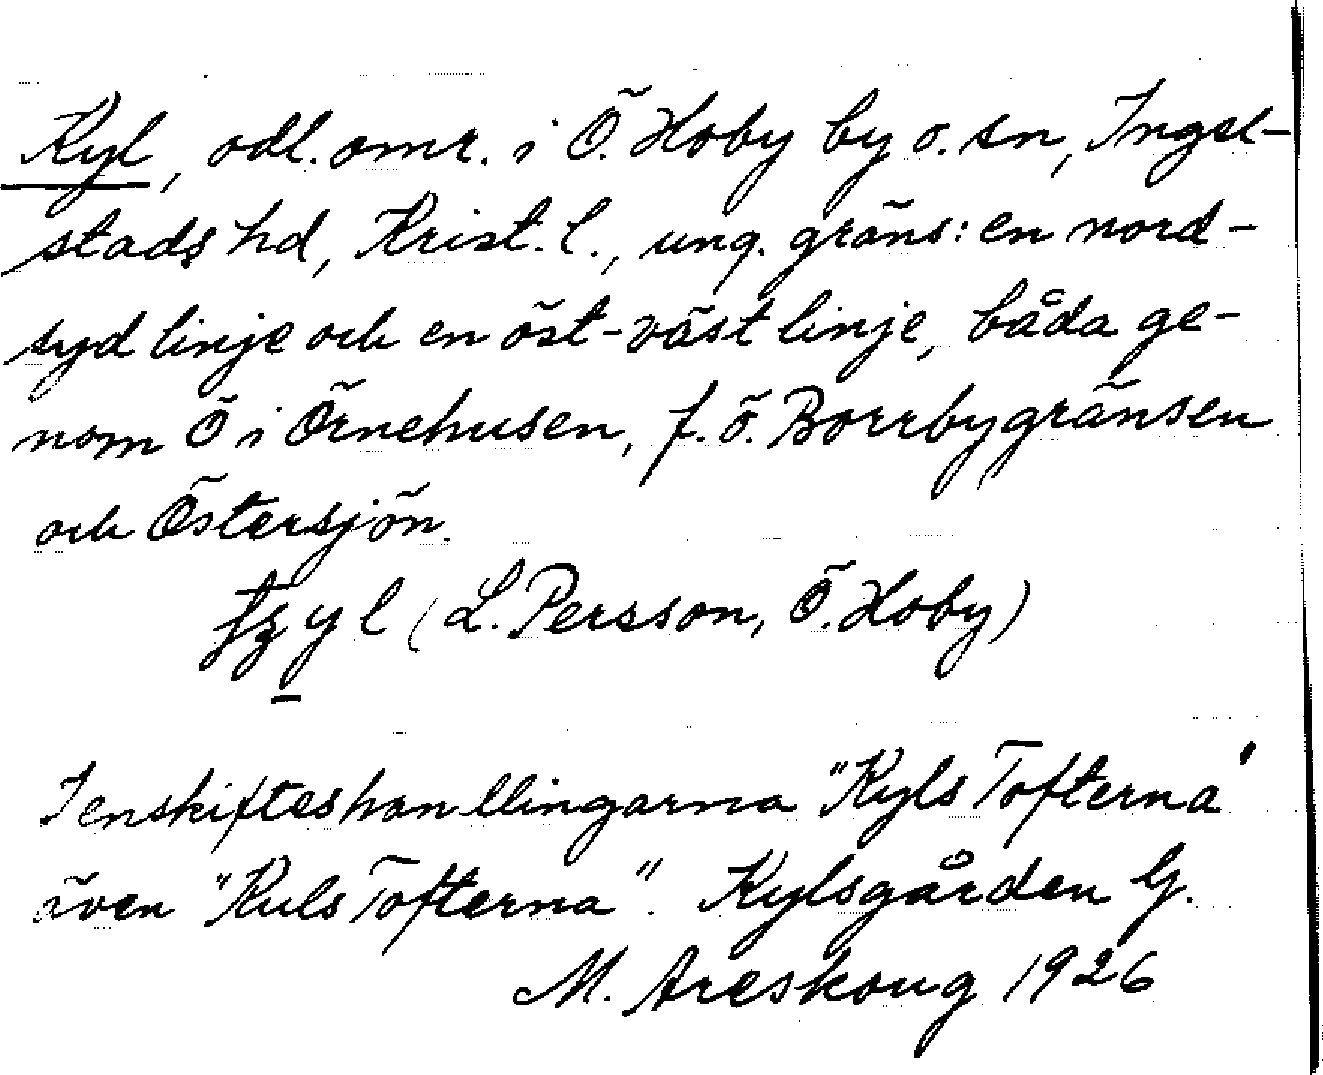 Kyl, odl. omr. i Ö. Hoby by o. sn, Ingel-
stads hd, Krist. l., ung. gräns: en nord-
syd linje och en öst-väst linje, båda ge-
nom Ö i Örnehusen, f. ö. Borrbygränsen
och Östersjön.
yl (L. Persson, Ö. Hoby)
I enskifteshanllingarna "Kyls Tofterna"
även "Kuls Tofterna". Kylsgården G.
M. Areskoug 1926